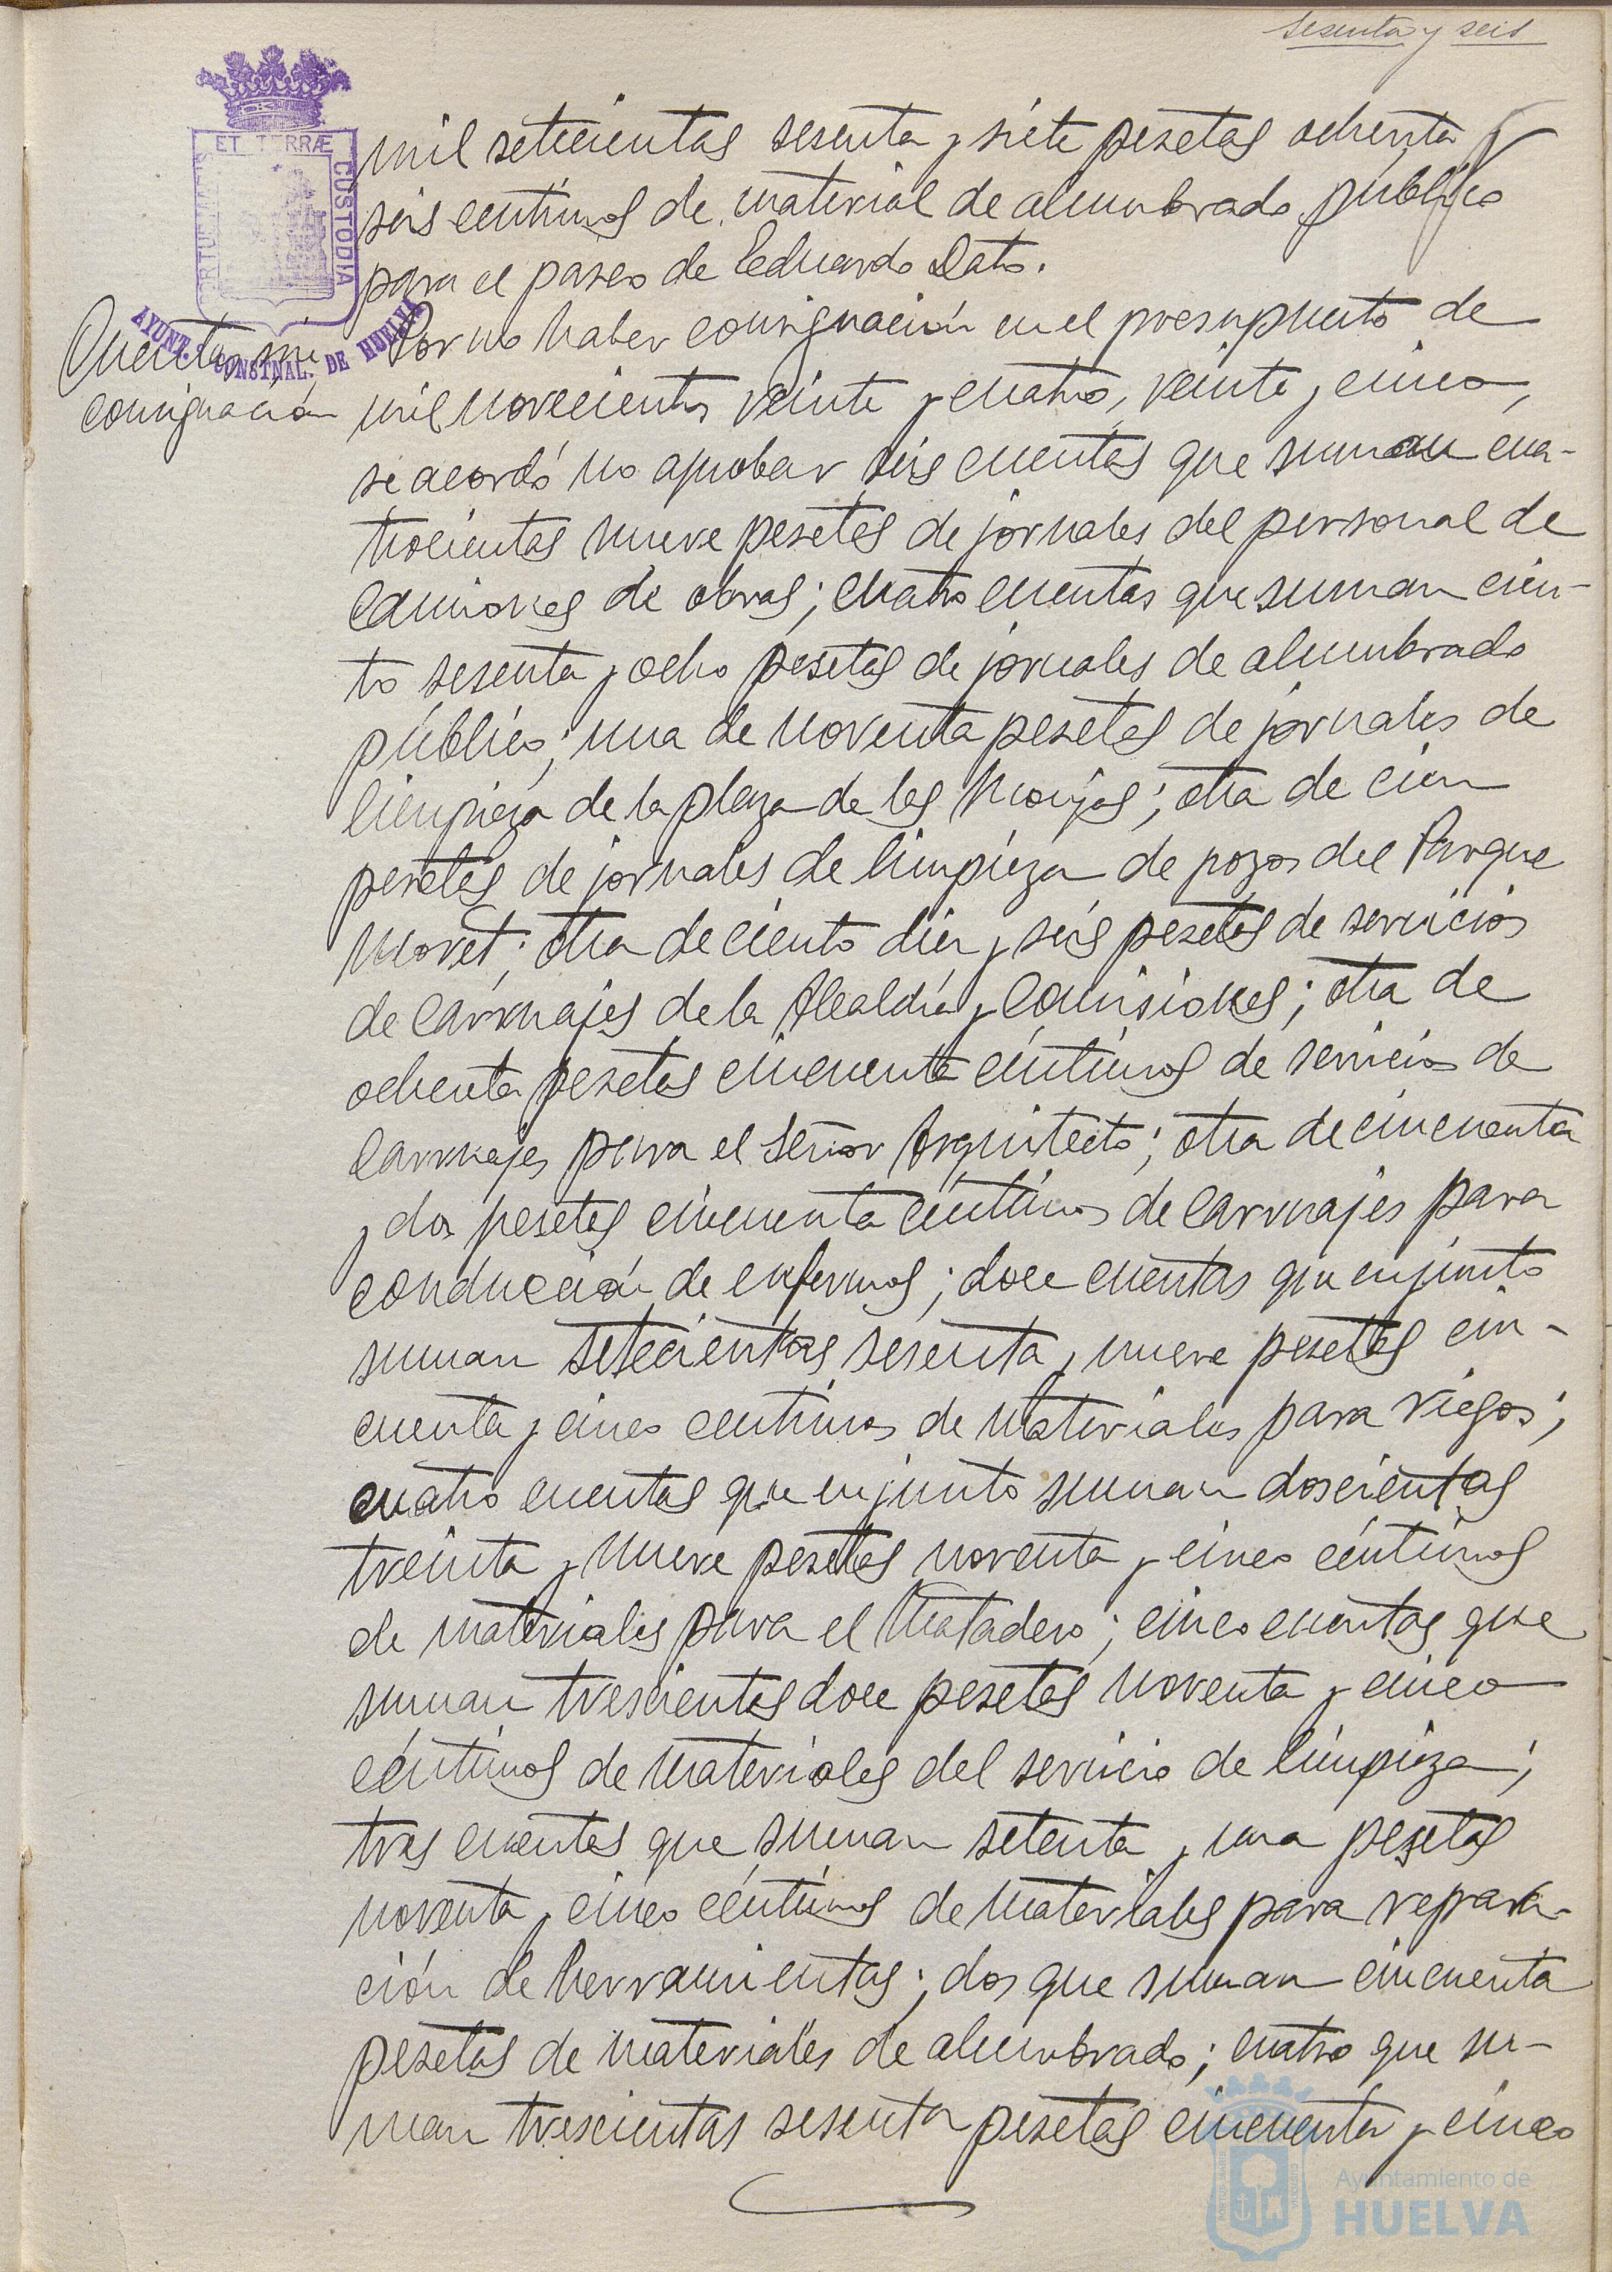 sesenta y seis
ET TERRÆ
CUSTODIA
AYUNT. CONSTNAL. DE HUELVA
mil setecientas sesenta y siete pesetas ochenta y
seis centimos de material de alumbrado público
para el paseo de Eduardo Dato.
Cuentas sin
consignación
Por no haber consignación en el presupuesto de
mil novecientos veinte y cuatro, veinte y cinco,
se acordó no aprobar seis cuentas que suman cua-
trocientas nueve pesetas de jornales del personal de
camiones de obras; cuatro cuentas que suman cien-
to sesenta y ocho pesetas de jornales de alumbrado
público; una de noventa pesetas de jornales de
limpieza de la plaza de las Monjas; otra de cien
pesetas de jornales de limpieza de pozos del Parque
Moret; otra de ciento diez y seis pesetas de servicios
de carruajes de la Alcaldía y Comisiones; otra de
ochenta pesetas cincuenta céntimos de servicio de
carruajes para el Señor Arquitecto; otra de cincuenta
y dos pesetas cincuenta céntimos de carruajes para
conducción de enfermos; doce cuentas que en junto
suman setecientas sesenta y nueve pesetas cin-
cuenta y cinco centimos de materiales para riegos;
cuatro cuentas que en junto suman doscientas
treinta y nueve pesetas noventa y cinco céntimos
de materiales para el Matadero; cinco cuentas que
suman trescientas doce pesetas noventa y cinco
céntimos de materiales del servicio de limpieza;
tres cuentas que suman setenta y una pesetas
noventa y cinco céntimos de materiales para repara-
ción de herramientas; dos que suman cincuenta
pesetas de materiales de alumbrado; cuatro que su-
man trescientas sesenta pesetas cincuenta y cinco
Ayuntamiento de
HUELVA